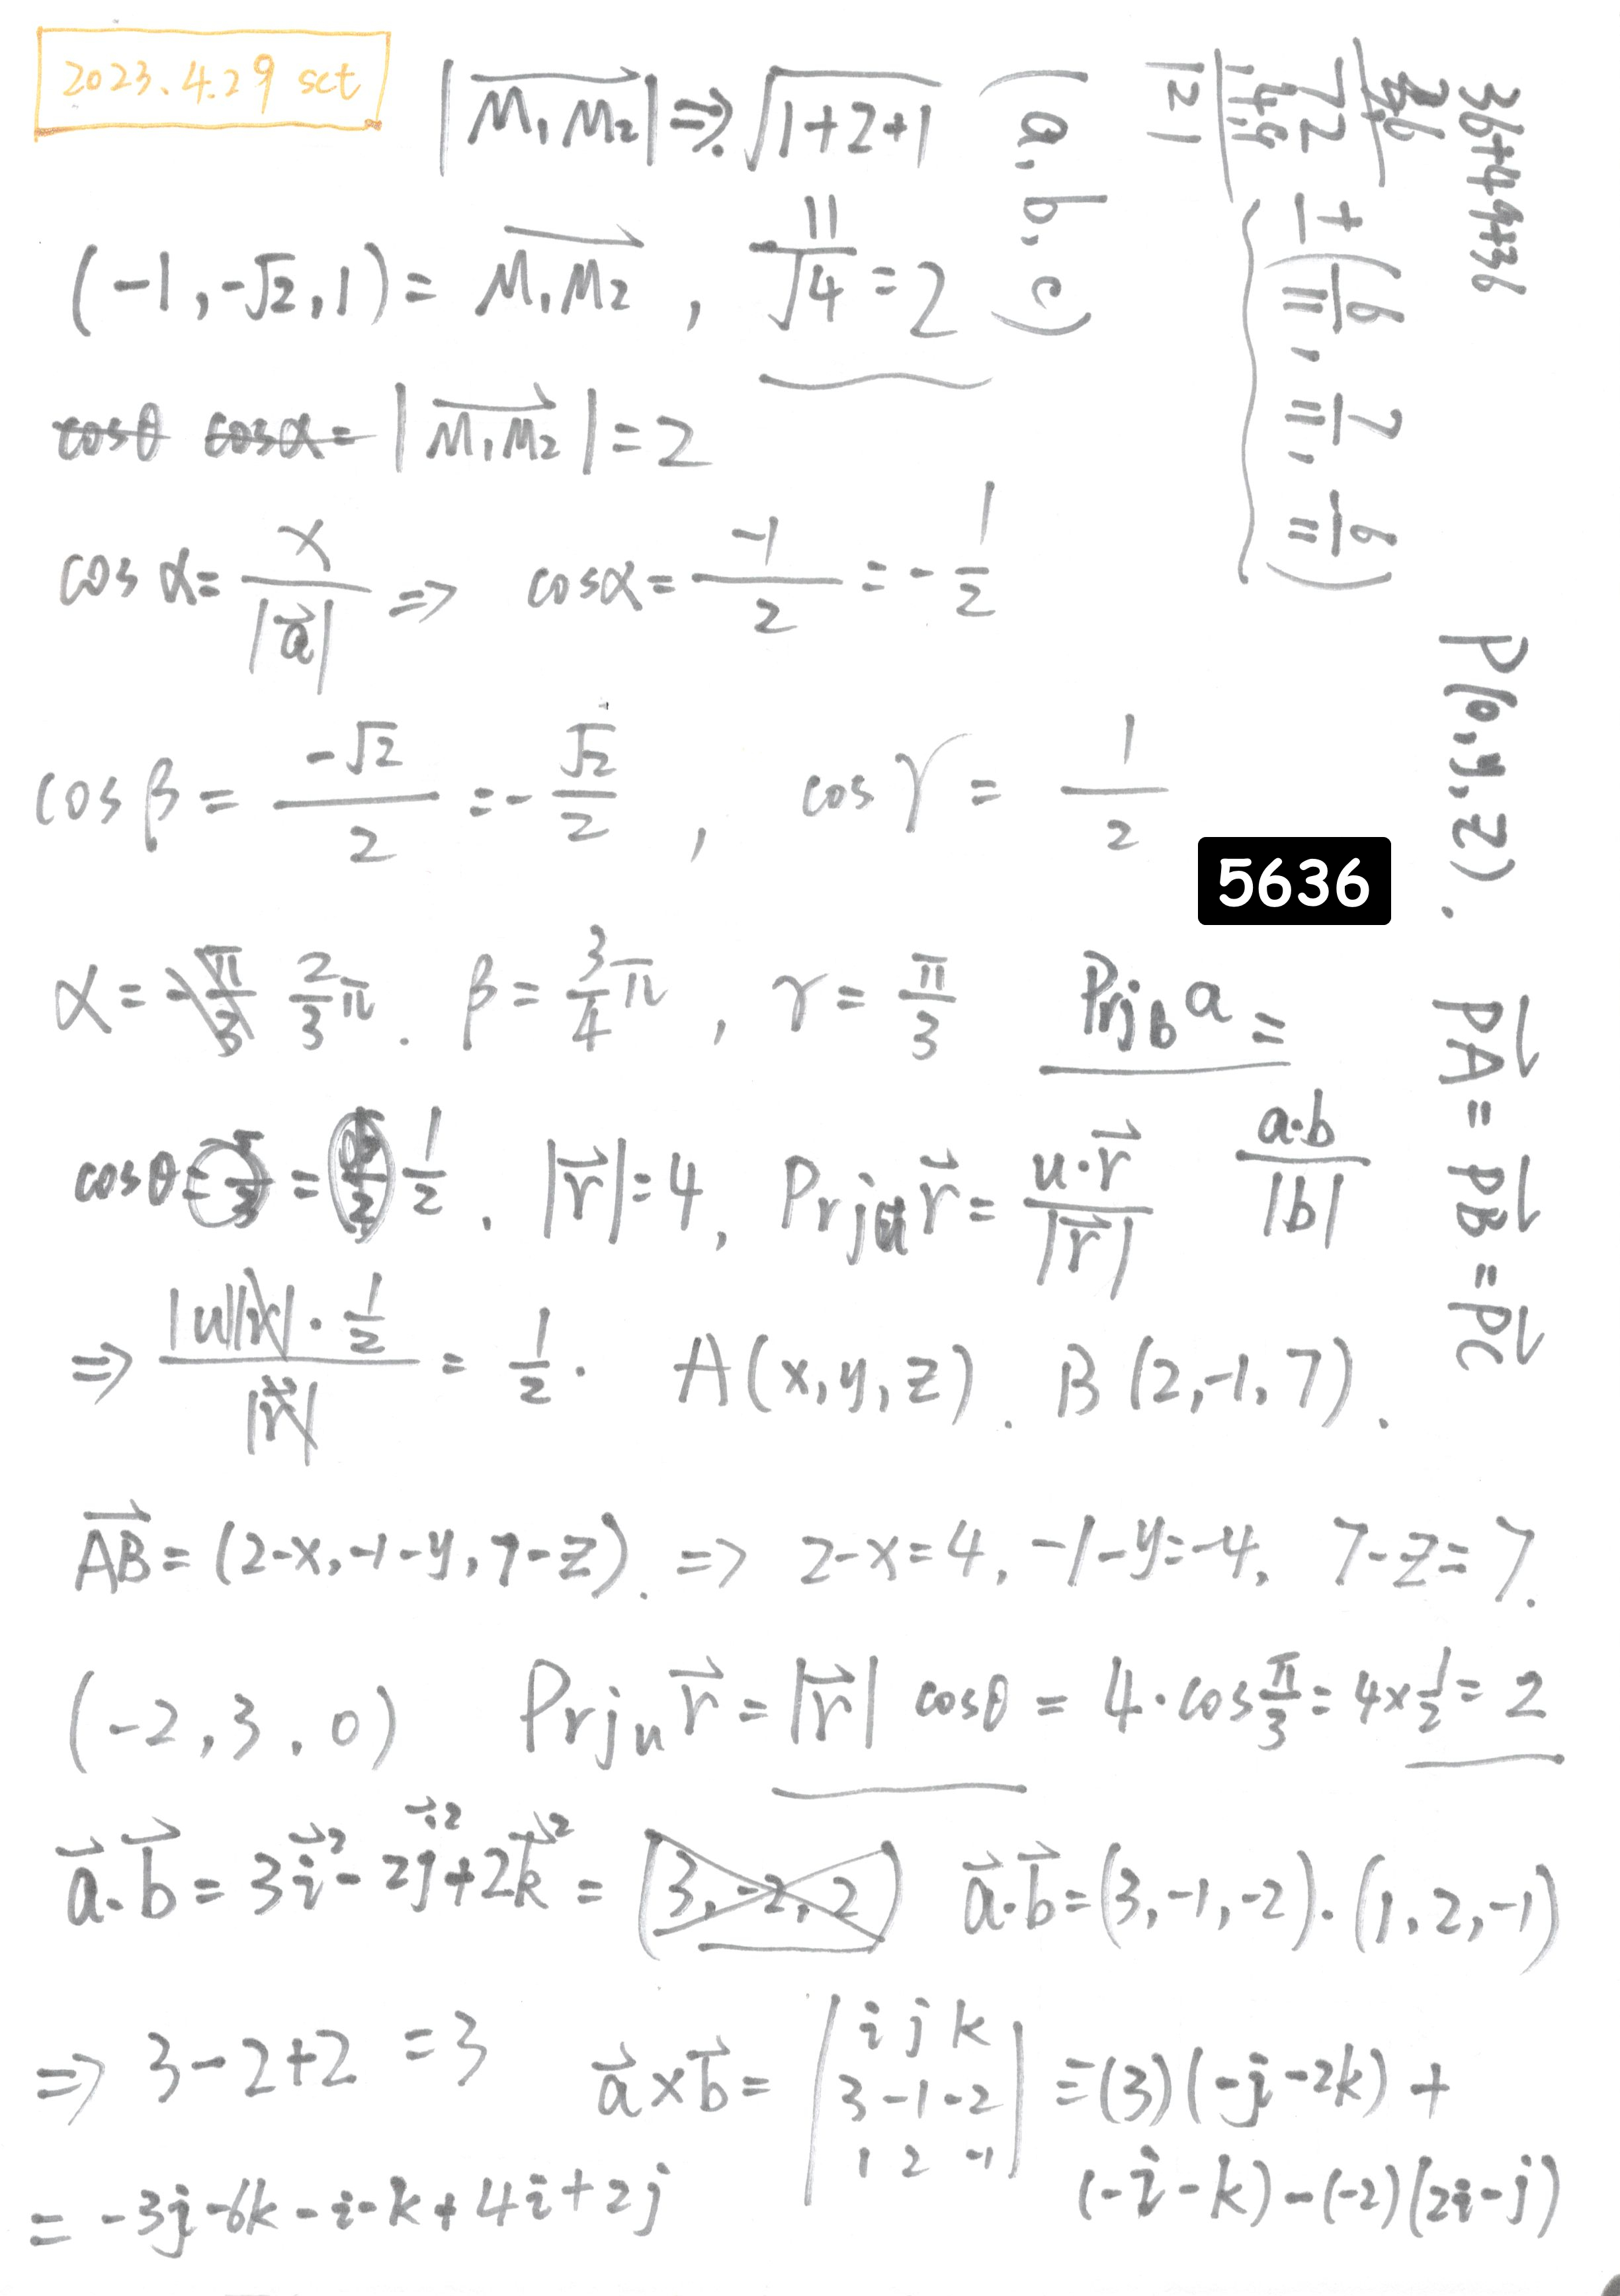 2023.4.29 sct
|M₁M₂| ⇒ √1+2+1
(-1, -√2, 1) = M₁M₂, = √4 = 2
cosθ cosα= |M₁M₂| = 2
cosα = x/|a| => cosα = -1/2 = -1/2
cosβ = -√2/2 = -√2/2, cosγ = 1/2
5636
α = -π/3 2/3π. β = 3/4π, γ = π/3
Prj_b a = a·b/|b|
cosθ = π/3 = 1/2. |r| = 4, Prj_u r = u·r/|r|
=> |u||r|·1/2/|r| = 1/2. A(x,y,z). B(2,-1,7).
AB = (2-x, -1-y, 7-z). => 2-x=4, -1-y=-4, 7-z=7.
(-2, 3, 0) Prj_u r = |r| cosθ = 4·cosπ/3 = 4×1/2 = 2
a·b = 3i² - 2j² + 2k² = (3, -2, 2) a·b = (3,-1,-2)·(1,2,-1)
=> 3-2+2 = 3 a×b = | i j k
3 -1 -2
1 2 -1 | = (3)(-j-2k) +
(-i-k)-(-2)(2i-j)
= -3j-6k-i-k+4i+2j
(a, b, c)
36+49+36
72
49
121
± (6/11, 7/11, 6/11)
P(0,y,z).
PA = PB = PC